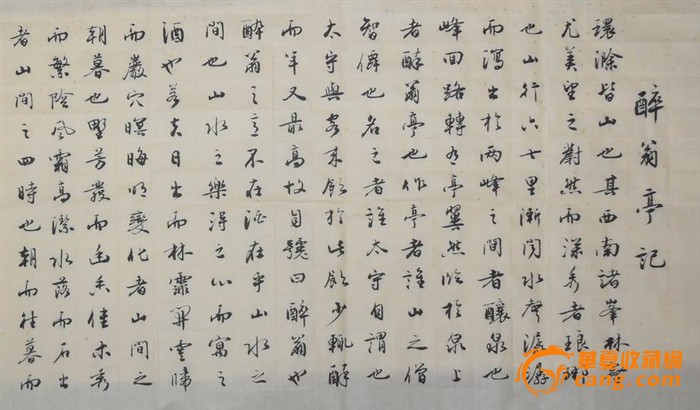 醉翁亭記
環滁皆山也其西南諸峯林壑
尤美望之蔚然而深秀者琅琊
也山行六七里漸聞水聲潺潺
而瀉出於兩峰之間者釀泉也
峰回路轉有亭翼然臨於泉上
者醉翁亭也作亭者誰山之僧
智僊也名之者誰太守自謂也
太守與客來飲於此飲少輒醉
而年又最高故自號曰醉翁也
醉翁之意不在酒在乎山水之
間也山水之樂得之心而寓之
酒也若夫日出而林霏開雲歸
而巖穴暝晦明變化者山間之
朝暮也野芳發而幽香佳木秀
而繁陰風霜高潔水落而石出
者山間之四時也朝而往暮而
華夏收藏網
cang.com